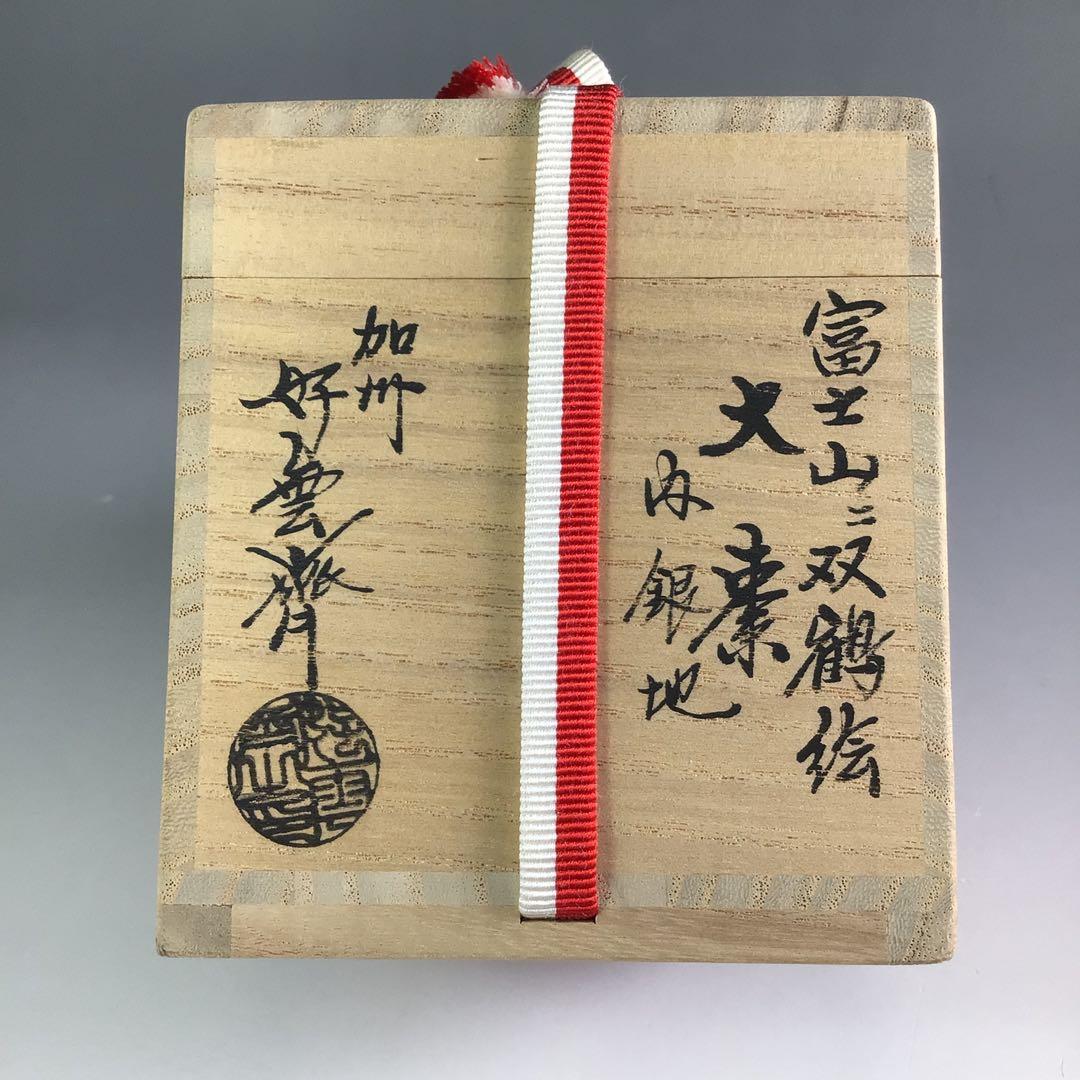 富士山ニ双鶴絵
大棗
内銀地
加州
好雲齋